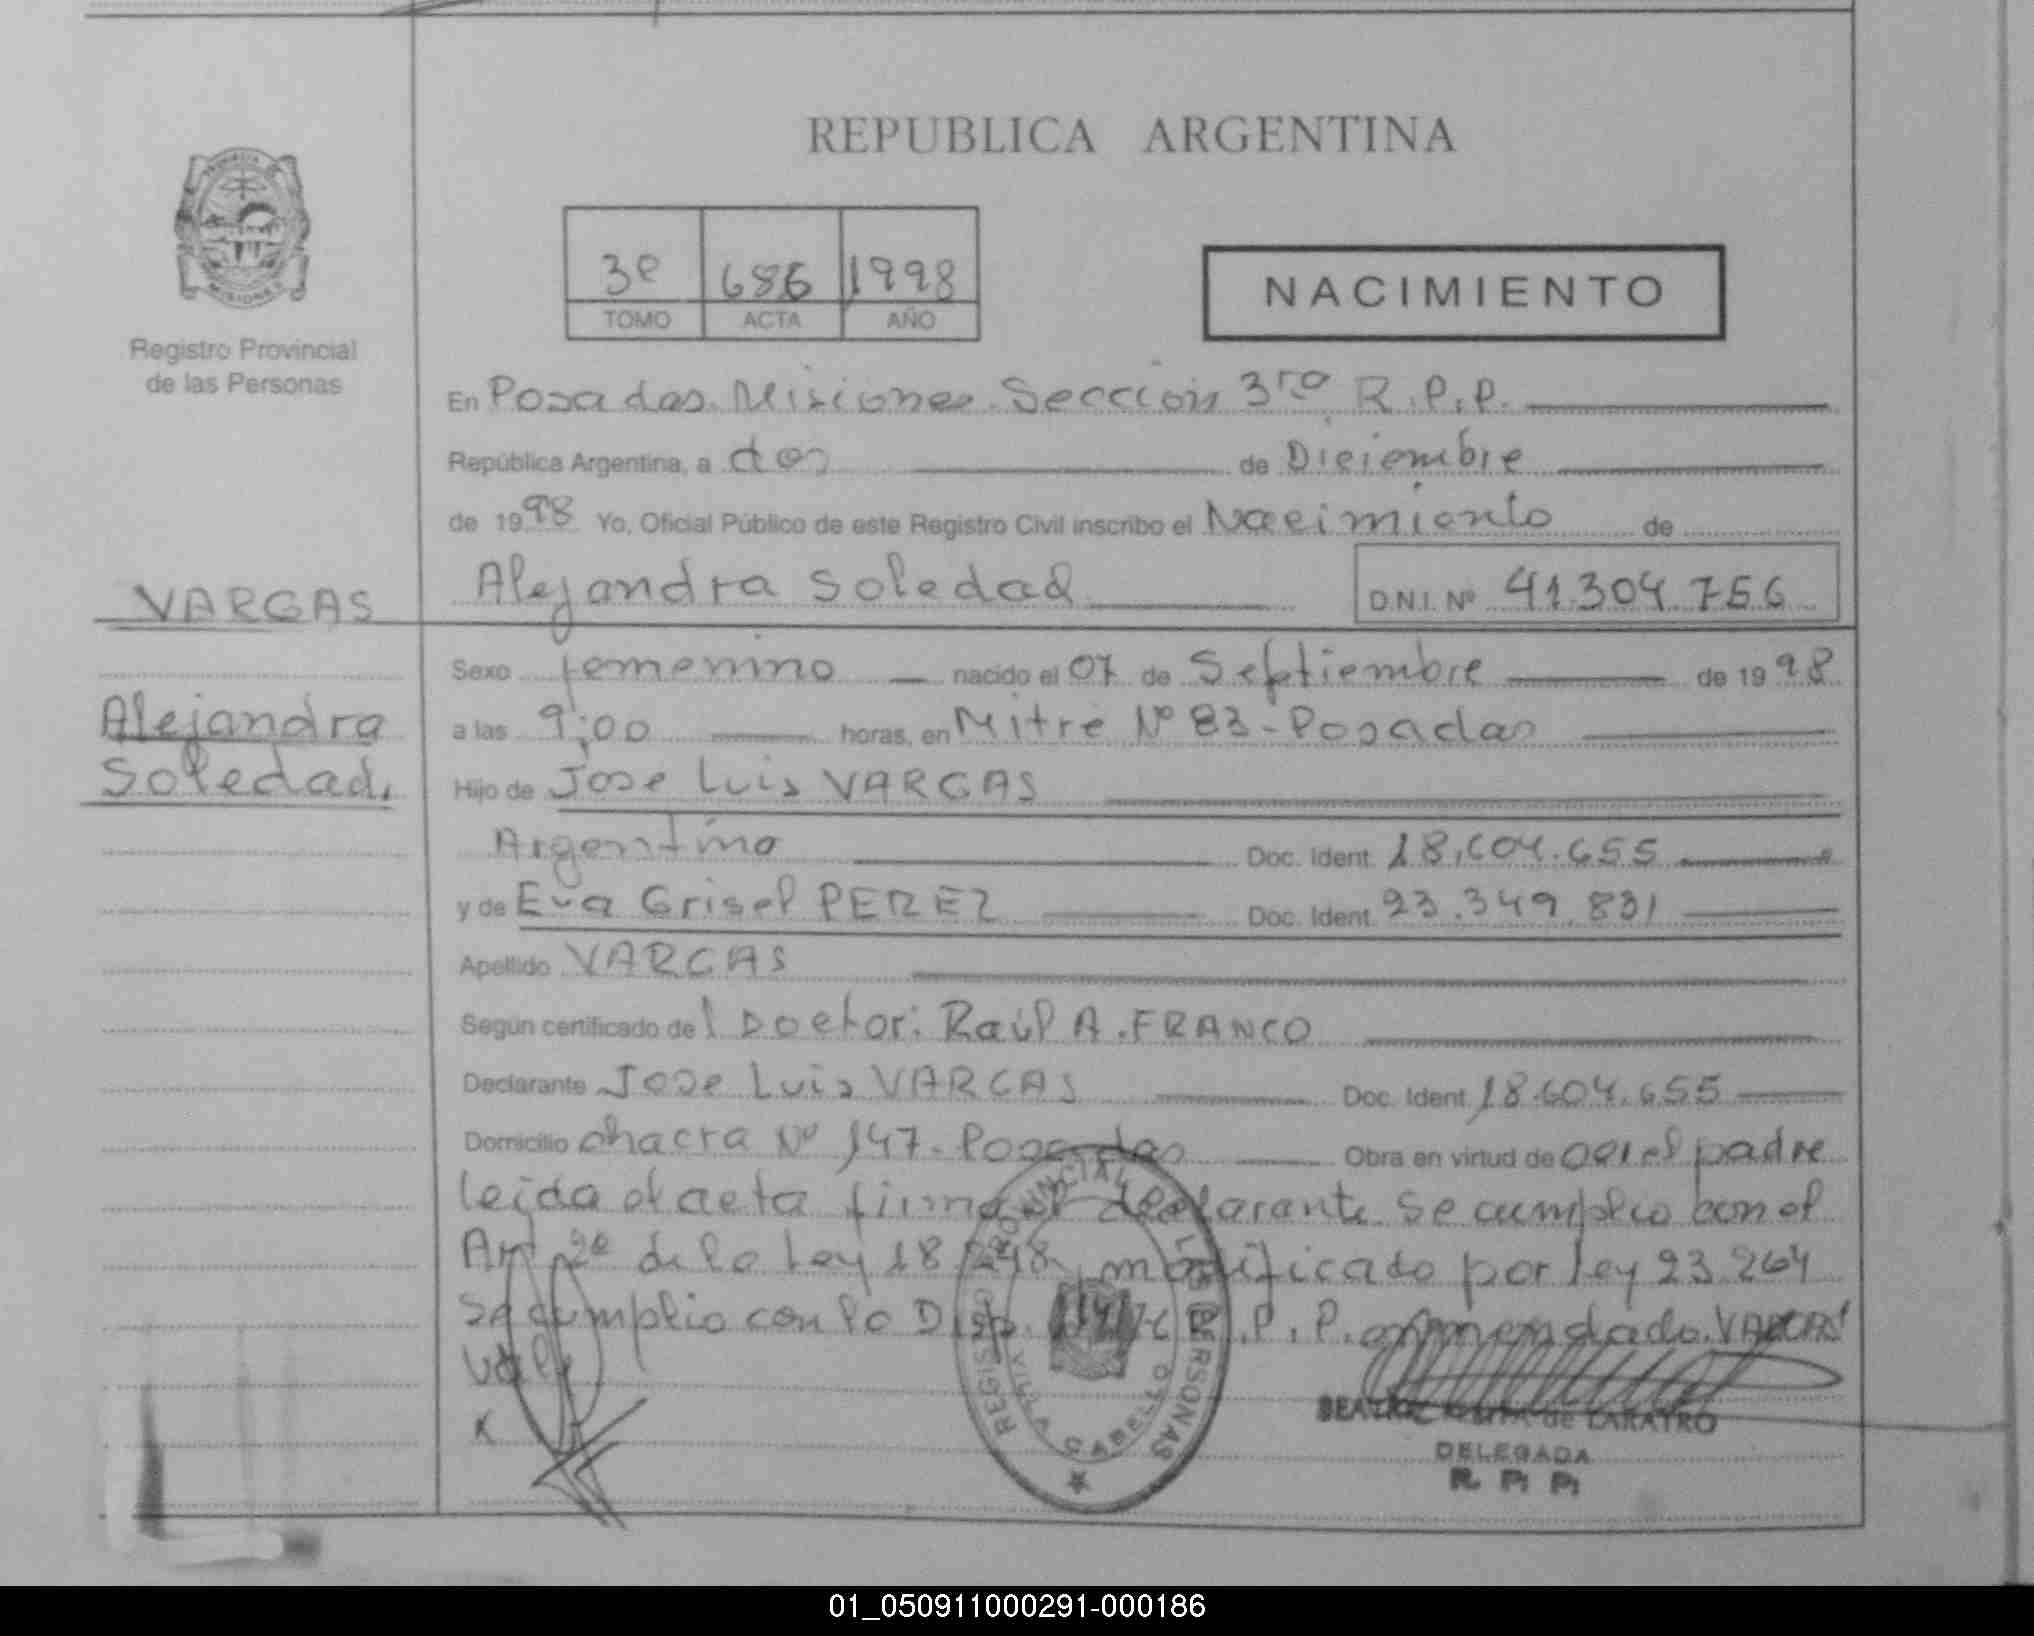 REPUBLICA ARGENTINA
PROVINCIA DE
MISIONES
Registro Provincial
de las Personas
3º 686 1998
TOMO ACTA AÑO
NACIMIENTO
En Posadas. Misiones. Sección 3ra R.P.P.
República Argentina, a dos de Diciembre
de 1998 Yo, Oficial Público de este Registro Civil inscribo el Nacimiento de
Alejandra Soledad D.N.I. Nº 41.304.756
VARGAS
Alejandra
Soledad.
Sexo femenino nacido el 07 de Septiembre de 1998
a las 9:00 horas, en Mitre Nº 83 - Posadas
Hijo de Jose Luis VARGAS
Argentino Doc. Ident. 18.604.655
y de Eva Grisel PEREZ Doc. Ident. 23.349.831
Apellido VARGAS
Según certificado del Doctor: Raúl A. FRANCO
Declarante Jose Luis VARGAS Doc. Ident. 18.604.655
Domicilio chacra Nº 147 - Posadas Obra en virtud de ser el padre
leida el acta firma el declarante se cumplio con el
Art 2º de la Ley 18.248 modificado por ley 23.264
se cumplio con la Disp. R.P.P. enmendado. VARGAS
Vale
x
REGISTRO PROVINCIAL DE LAS PERSONAS
VILLA CABELLO
BEATRIZ de LARATRO
DELEGADA
R. P. P.
01_050911000291-000186